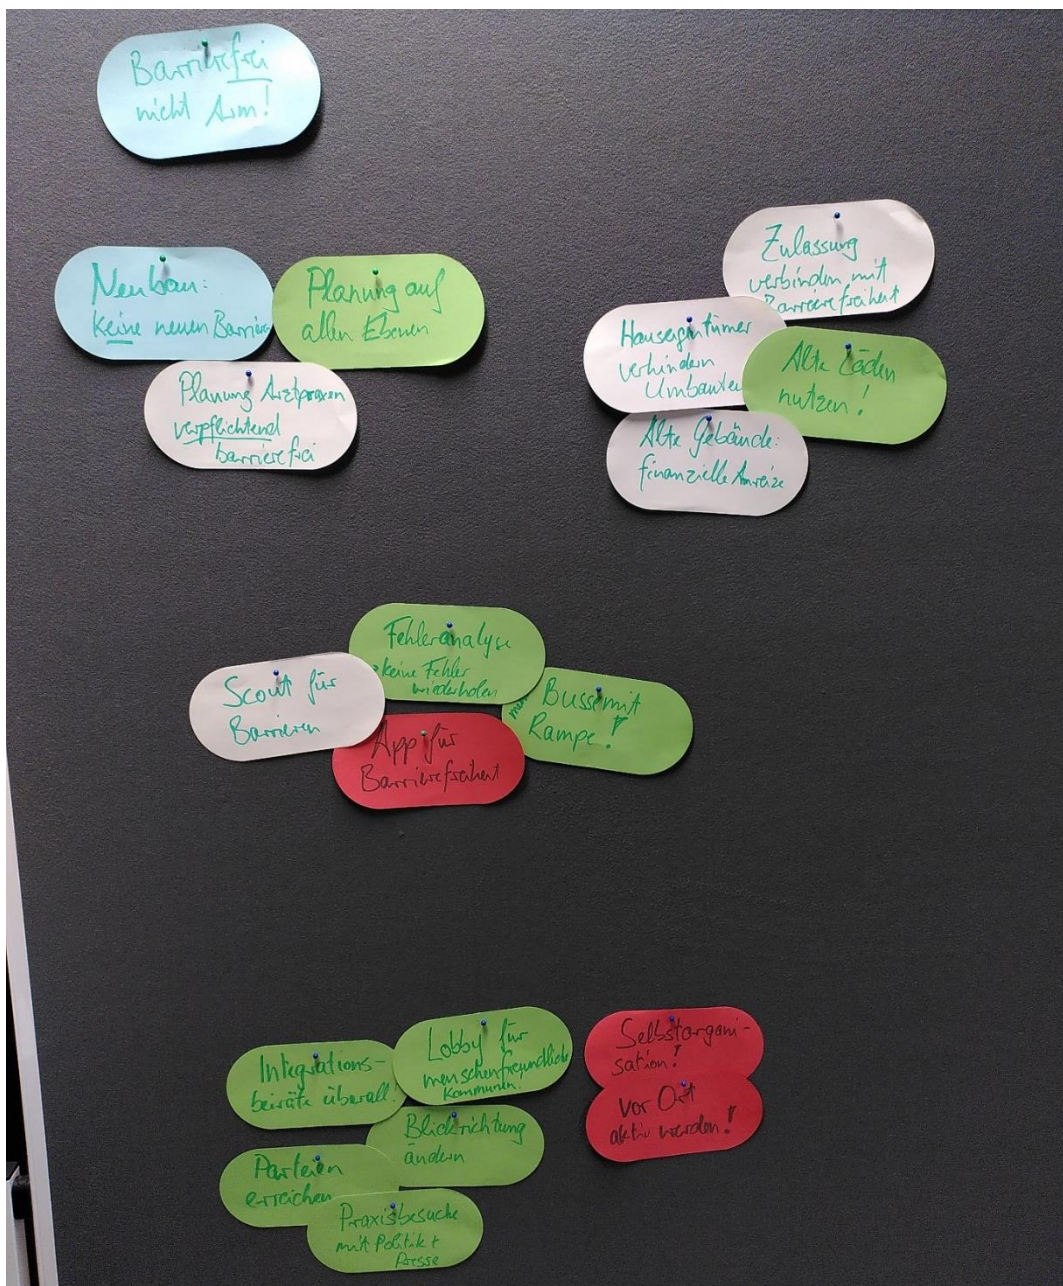 Barrierefrei
nicht Arm!
Neubau:
keine neuen Barrieren
Planung auf
allen Ebenen
Planung Arztpraxen
verpflichtend
barrierefrei
Zulassung
verbinden mit
Barrierefreiheit
Hauseigentümer
verhindern
Umbauten
Alte Läden
nutzen!
Alte Gebäude:
finanzielle Anreize
Scout für
Barrieren
Fehleranalyse
keine Fehler
wiederholen
Busse mit
Rampe!
App für
Barrierefreiheit
Integrations-
beiräte überall!
Lobby für
menschenfreundliche
Kommunen.
Blickrichtung
ändern
Parteien
erreichen
Praxisbesuche
mit Politik +
Presse
Selbstorgani-
sation!
vor Ort
aktiv werden!